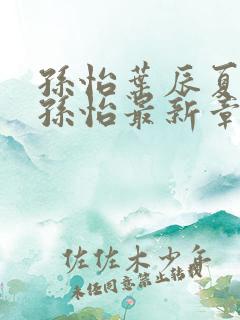 孫怡葉辰夏
孫怡最新章
佐佐木少年
未任同意禁止转载